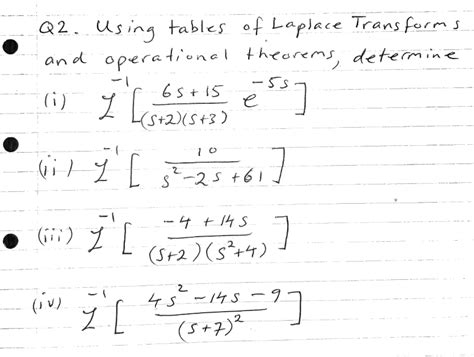 Q2. Using tables of Laplace Transforms
and operational theorems, determine
(i) ℒ⁻¹ [ (6s + 15) / ((s+2)(s+3)) e^(-5s) ]
(ii) ℒ⁻¹ [ 10 / (s² - 2s + 61) ]
(iii) ℒ⁻¹ [ (-4 + 14s) / ((s+2)(s²+4)) ]
(iv) ℒ⁻¹ [ (4s² - 14s - 9) / (s+7)² ]